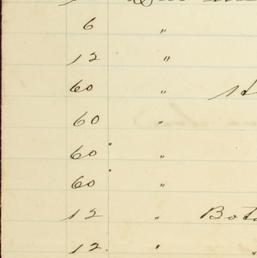 6 "
12 "
60 "
60 "
60 "
60 "
12 "
12 "